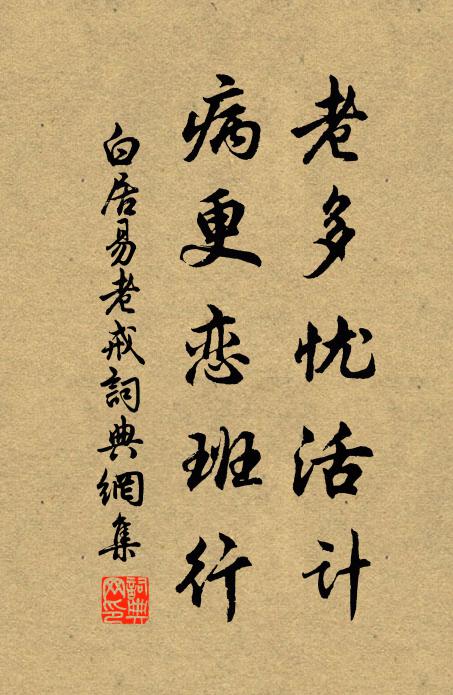 老多忧活计
病更恋班行
白居易老戒詞典網集
詞典网印